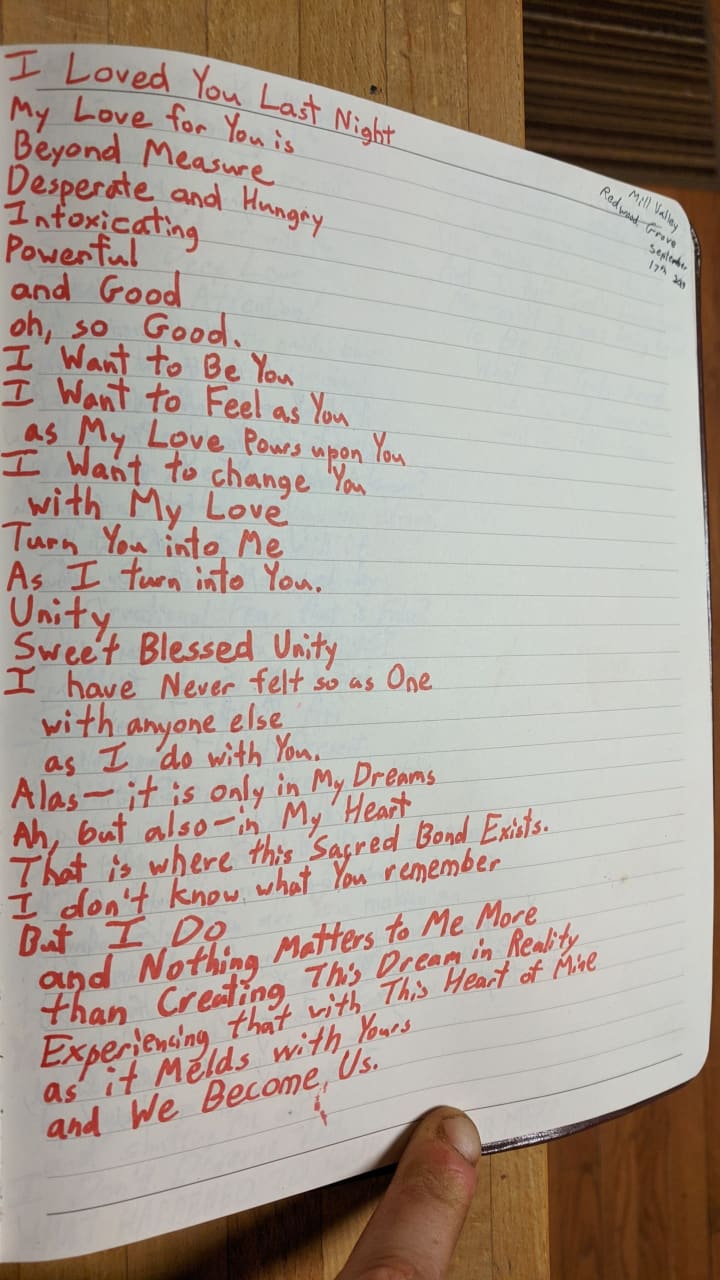 I Loved You Last Night
My Love for You is
Beyond Measure
Desperate and Hungry
Intoxicating
Powerful
and Good
oh, so Good.
I Want to Be You
I Want to Feel as You
as My Love Pours upon You
I Want to change You
with My Love
Turn You into Me
As I turn into You.
Unity
Sweet Blessed Unity
I have Never felt so as One
with anyone else
as I do with You.
Alas— it is only in My Dreams
Ah, but also—in My Heart
That is where this Sacred Bond Exists.
I don't know what You remember
But I Do
and Nothing Matters to Me More
than Creating This Dream in Reality
Experiencing that with This Heart of Mine
as it Melds with Yours
and We Become Us.
Mill Valley
Redwood Grove
September
17th